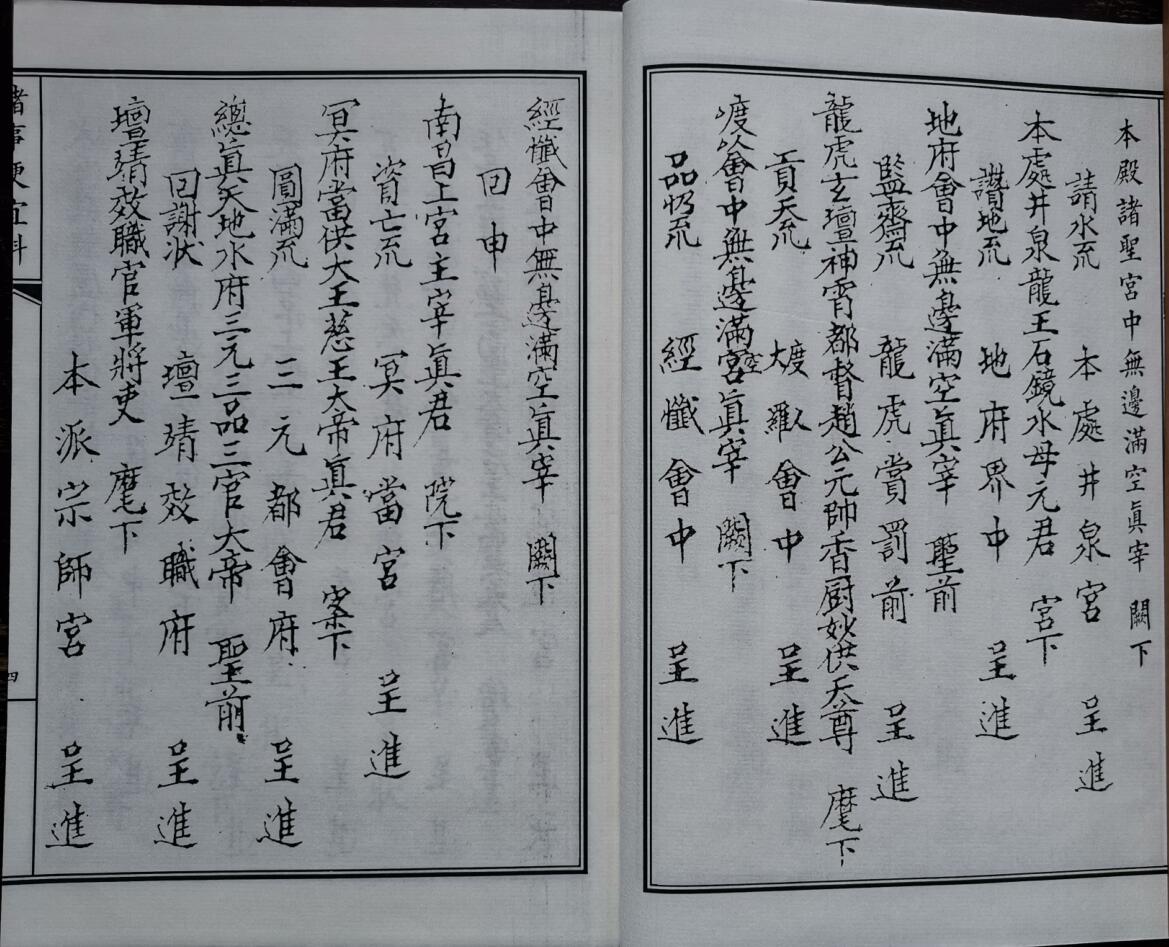 本殿諸聖宮中無邊滿空眞宰 闕下
請水㐬 本處井泉宮 呈進
本處井泉龍王石鏡水母元君 宮下
讚地㐬 地府界中 呈進
地府會中無邊滿空眞宰 聖前
監齋㐬 龍虎賞罰前 呈進
龍虎玄壇神霄都督趙公元帥香厨妙供天尊 麾下
貢天㐬 大羅會中 呈進
會中無邊滿空眞宰 闕下
㐬 經懺會中 呈進
經懺會中無邊滿空眞宰 闕下
回申
南昌上宮主宰眞君 院下
資亡㐬 冥府當宮 呈進
冥府當供大王慈王大帝眞君 案下
圓滿㐬 三元都會府 呈進
總眞天地水府三元三品三官大帝 聖前
回謝状 壇靖效職府 呈進
壇靖效職官軍將吏 麾下
本派宗師宮 呈進
諸事便宜科
四